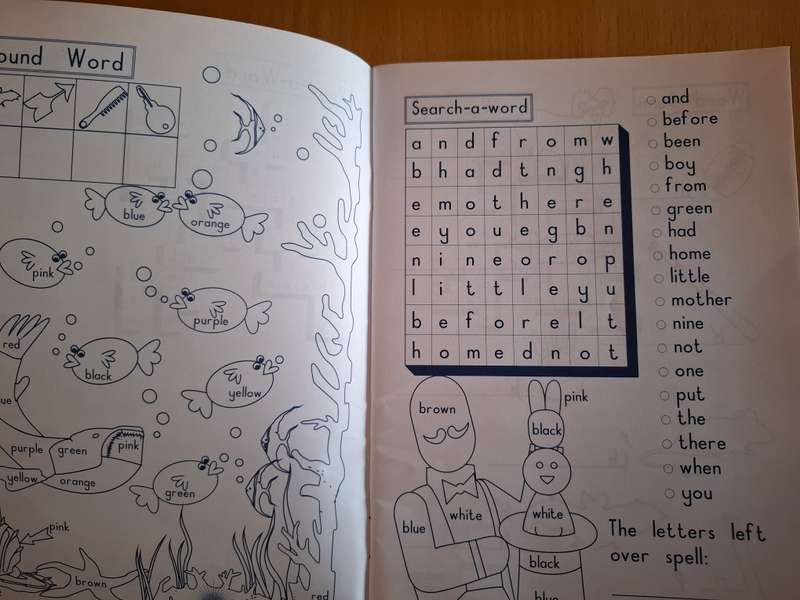 ound Word
blue
orange
pink
purple
red
black
yellow
ue
purple
green
pink
yellow
orange
green
pink
brown
red
Search-a-word
a n d f r o m w
b h a d t n g h
e m o t h e r e
e y o u e g b n
n i n e o r o p
l i t t l e y u
b e f o r e l t
h o m e d n o t
and
before
been
boy
from
green
had
home
little
mother
nine
not
one
put
the
there
when
you
brown
pink
black
blue
white
white
black
blue
The letters left
over spell: